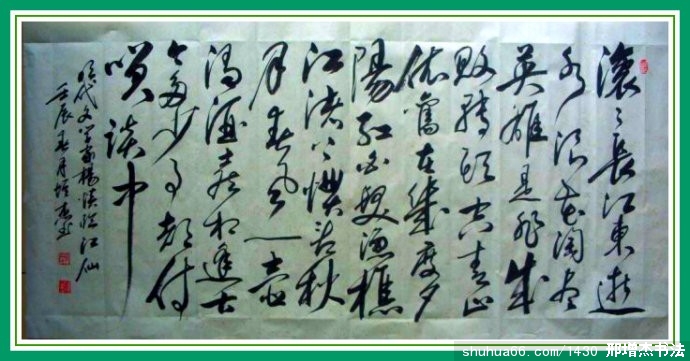 滚々長江東逝
水浪花淘尽
英雄是非成
败转头空青山
依舊在幾度夕
陽红白髮渔樵
江渚上惯看秋
月春风一壶
濁酒喜相逢古
今多少事都付
笑谈中
明代文学家楊慎临江仙
壬辰春月增杰书
shuhua66.com/1430 邢增杰书法